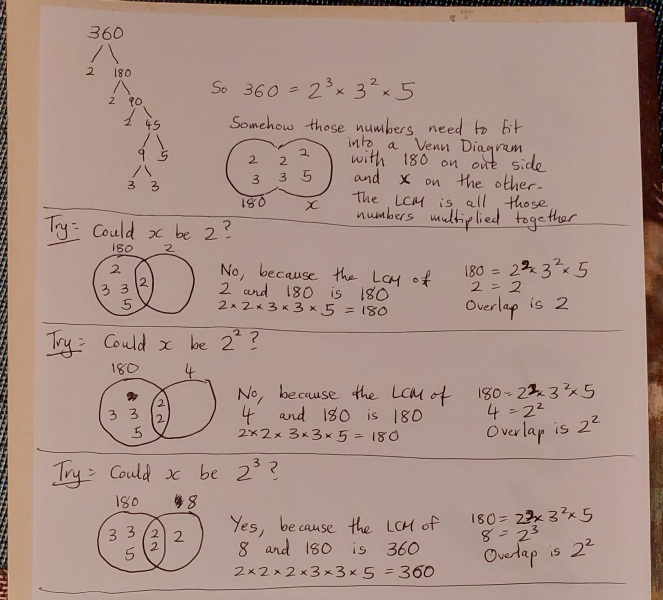 360
2 180
2 90
2 45
9 5
3 3
So 360 = 2³ × 3² × 5
Somehow those numbers need to fit
into a Venn Diagram
with 180 on one side
and x on the other.
The LCM is all those
numbers multiplied together
2 2 2
3 3 5
180 x
Try: Could x be 2?
180 2
2
3 3 2
5
No, because the LCM of
2 and 180 is 180
2×2×3×3×5 = 180
180 = 2² × 3² × 5
2 = 2
Overlap is 2
Try: Could x be 2²?
180 4
3 3 2
2
5
No, because the LCM of
4 and 180 is 180
2×2×3×3×5 = 180
180 = 2² × 3² × 5
4 = 2²
Overlap is 2²
Try: Could x be 2³?
180 8
3 3 2 2
5 2
Yes, because the LCM of
8 and 180 is 360
2×2×2×3×3×5 = 360
180 = 2² × 3² × 5
8 = 2³
Overlap is 2²